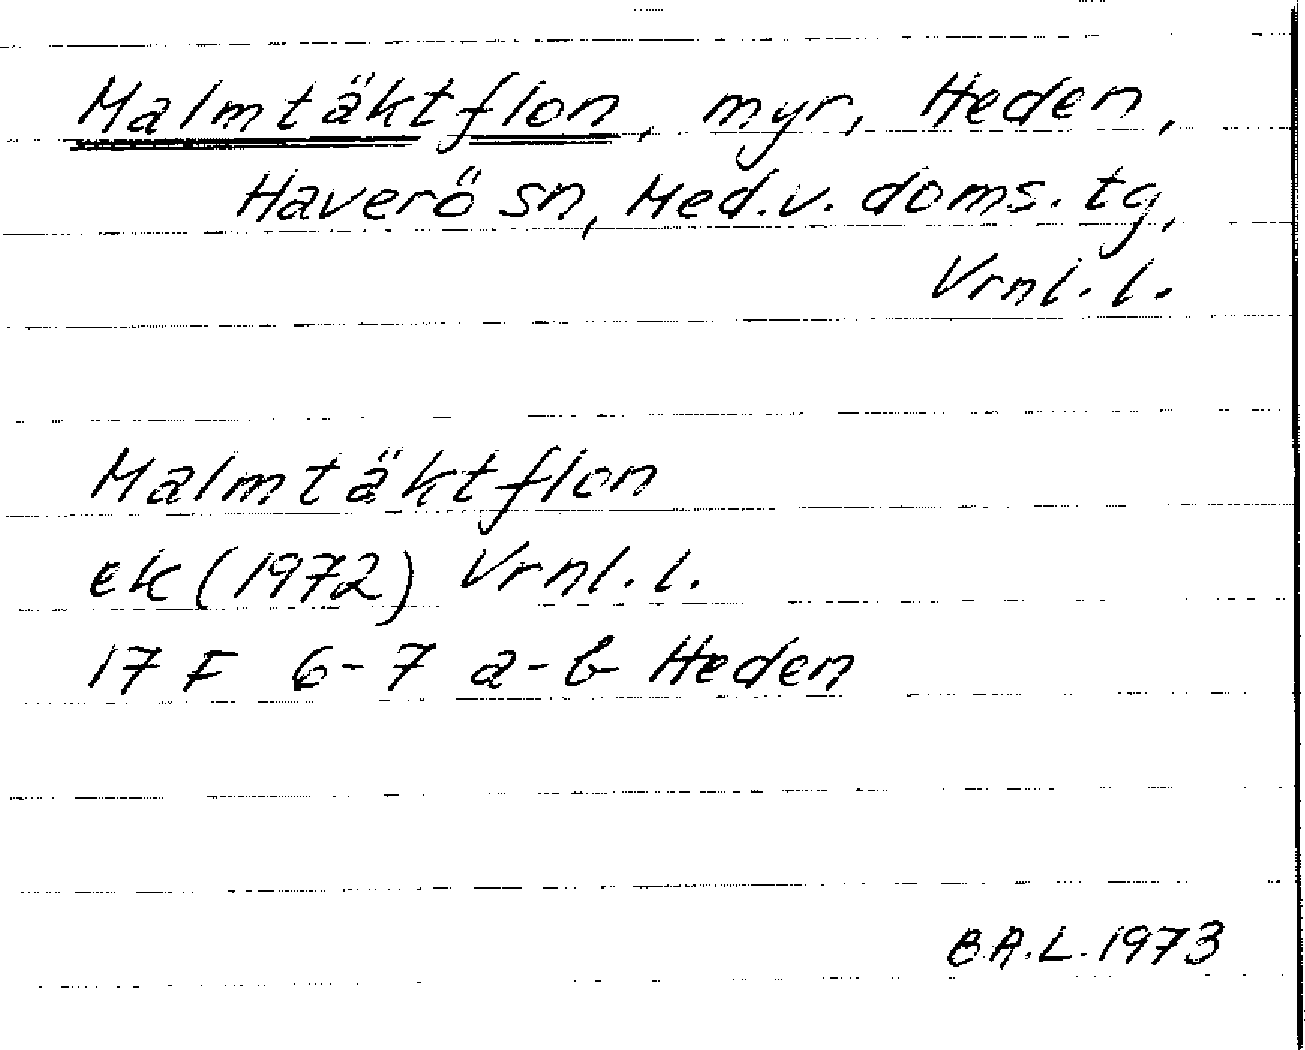 Malmtäktflon, myr, Heden,
Haverö sn, Med.v. doms. tg,
Vrnl. l.
Malmtäktflon
ek (1972) Vrnl. l.
17 F 6-7 a-b Heden
B.A.L. 1973